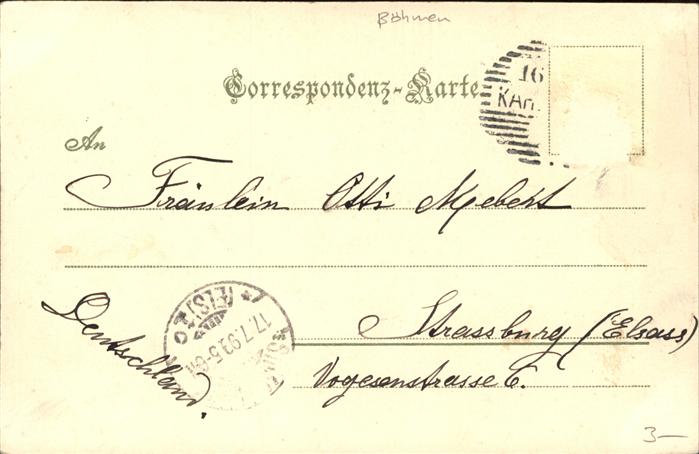 Böhmen
Correspondenz-Karte
16
KAR
An
Fräulein Otti
Strassburg (Elsass)
Vogesenstrasse 6.
Deutschland.
17.7.99.5-6N
3—